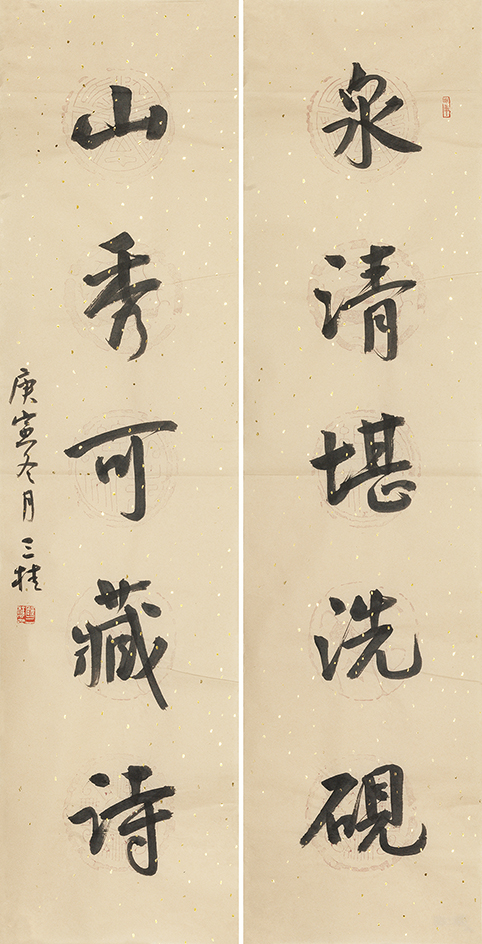 泉清堪洗砚
山秀可藏诗
庚寅冬月 三桂